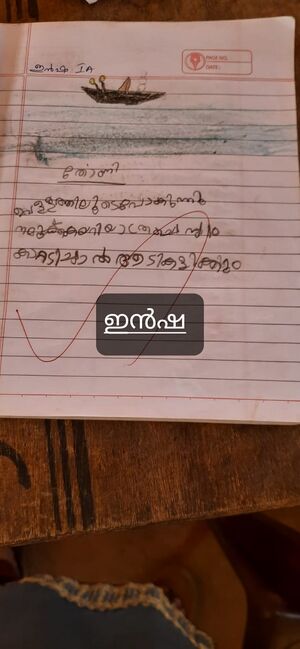 ഇൻഷ IA
PAGE NO.
DATE:
തോണി
വെള്ളത്തിലൂടെപോകുന്നു
നമുക്ക്കയറിയാത്രചെയ്യാം
കാറ്റടിച്ചാൽ ആടികളിക്കും
ഇൻഷ